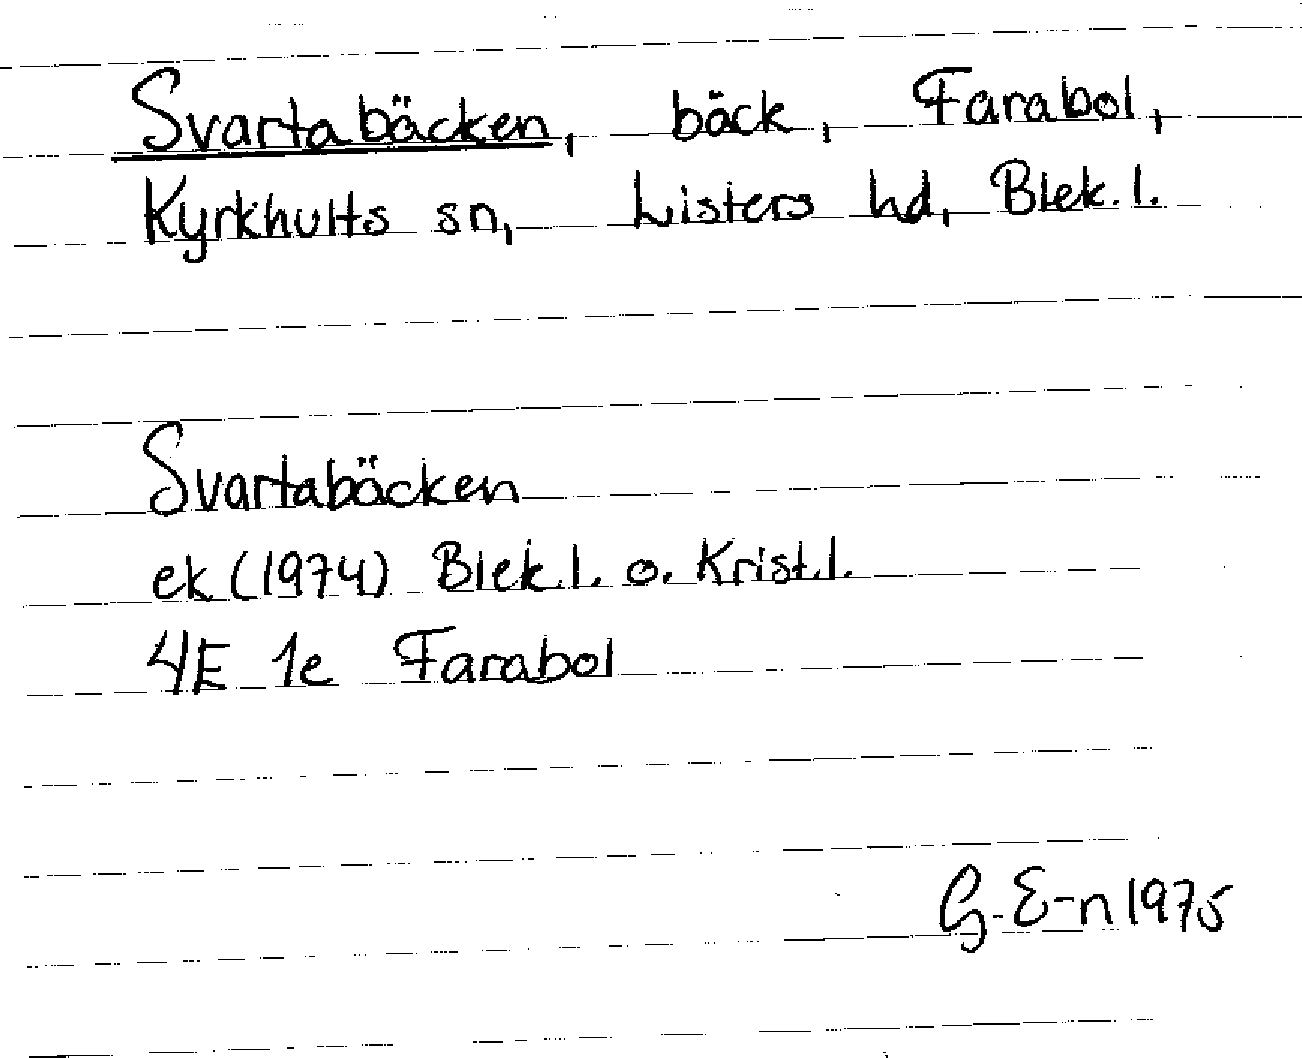 Svartabäcken, bäck, Farabol,
Kyrkhults sn, Listers hd, Blek. l.
Svartabäcken
ek (1974) Blek. l. o. Krist. l.
4E 1e Farabol
G. E-n 1975